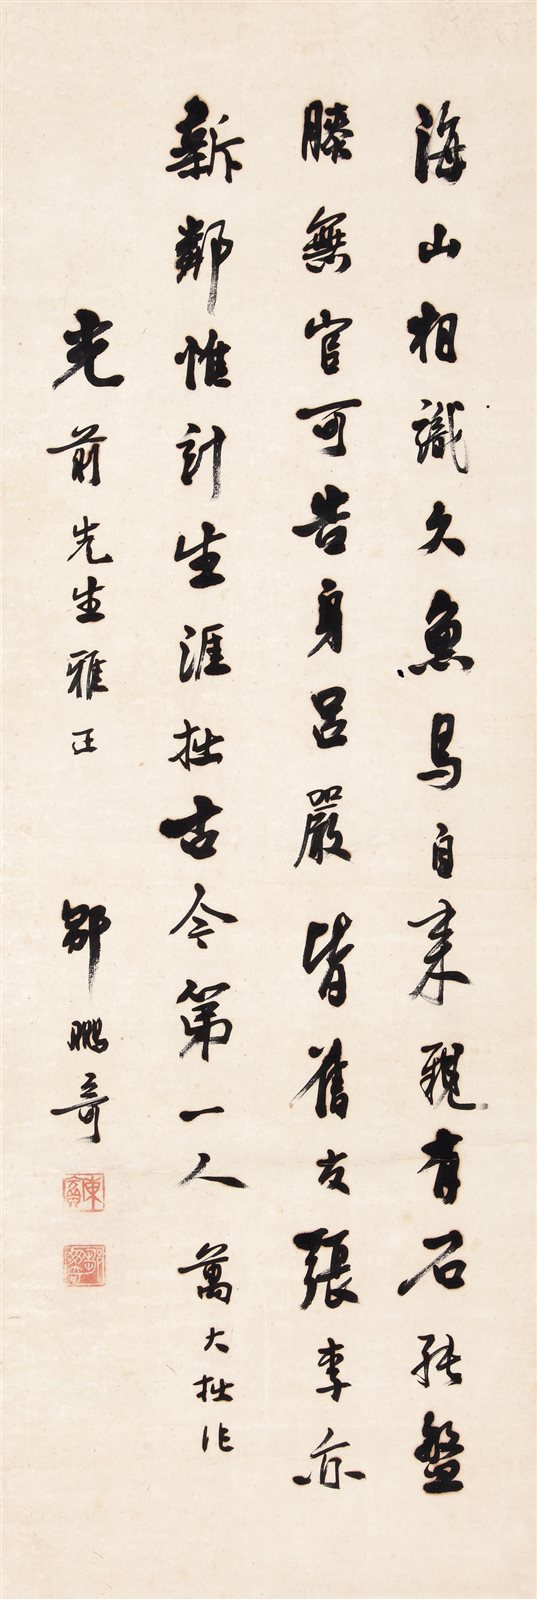 海山相識久魚鳥自來親有石能盤
膝無官可告身呂嚴皆舊友張李亦
新鄰惟計生涯拙古今第一人 萬大拙作
光前先生雅正 鄒鵬奇